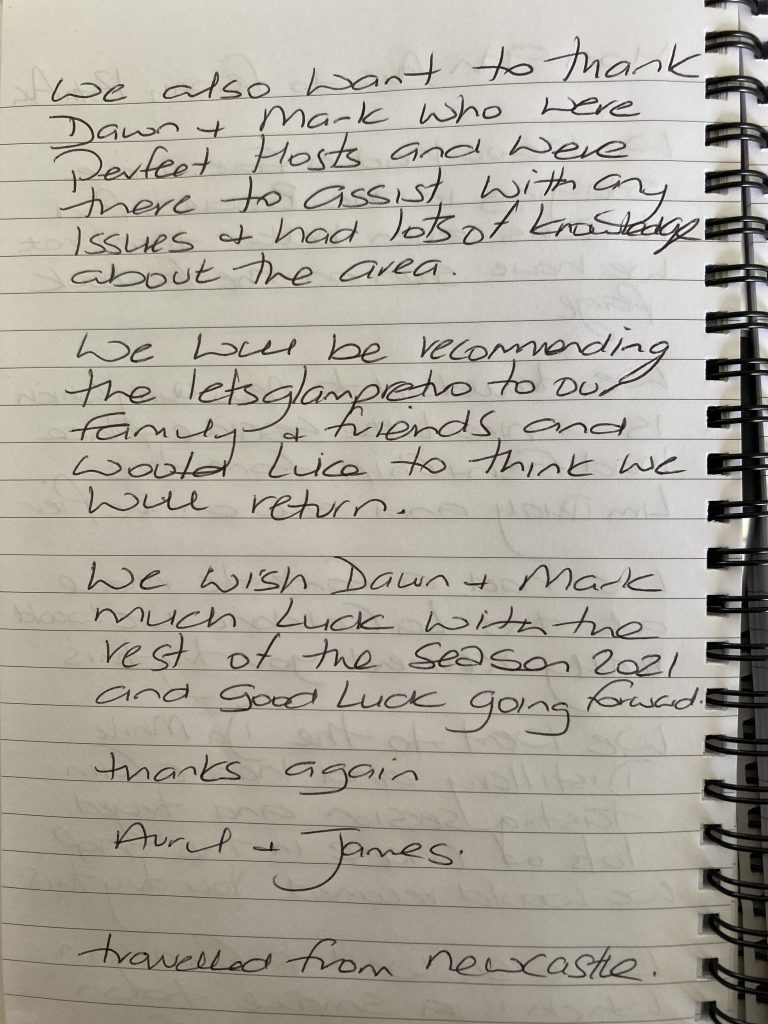 We also want to thank
Dawn + Mark who were
Perfect Hosts and were
there to assist with any
Issues & had lots of knowledge
about the area.
We will be recommending
the letsglampretro to our
family & friends and
would like to think we
will return.
We wish Dawn + Mark
much Luck with the
rest of the season 2021
and good Luck going forward.
thanks again
Avril + James.
travelled from newcastle.